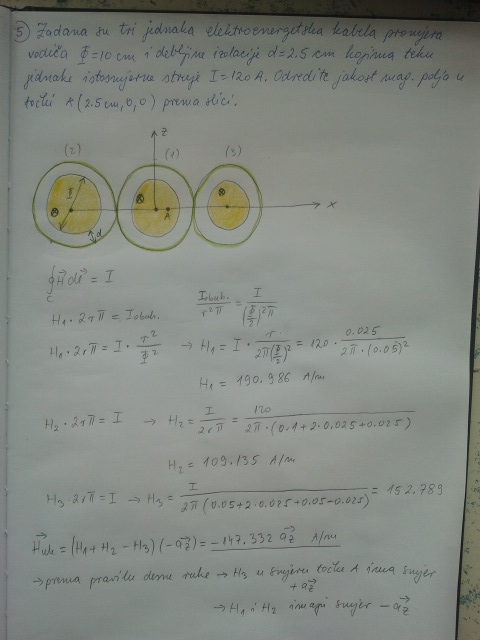 5) Zadana su tri jednaka elektroenergetska kabela promjera
vodiča Φ=10 cm i debljine izolacije d=2.5 cm kojima teku
jednake istosmjerne struje I=120 A. Odredite jakost mag. polja u
točki A(2.5cm,0,0) prema slici.
z
(2) (1) (3)
Φ A x
d
∮_C H⃗ dl⃗ = I
H₁·2rπ = Iobuh. Iobuh./r²π = I/((Φ/2)²π)
H₁·2rπ = I·r²/Φ² → H₁ = I·r/(2π(Φ/2)²) = 120·0.025/(2π·(0.05)²)
H₁ = 190.986 A/m
H₂·2rπ = I → H₂ = I/(2rπ) = 120/(2π·(0.1+2·0.025+0.025))
H₂ = 109.135 A/m
H₃·2rπ = I → H₃ = I/(2π(0.05+2·0.025+0.05-0.025)) = 152.789
H⃗uk = (H₁+H₂-H₃)(-a⃗z) = -147.332 a⃗z A/m
→ prema pravilu desne ruke → H₃ u smjeru točki A ima smjer
+a⃗z
→ H₁ i H₂ imaju smjer -a⃗z